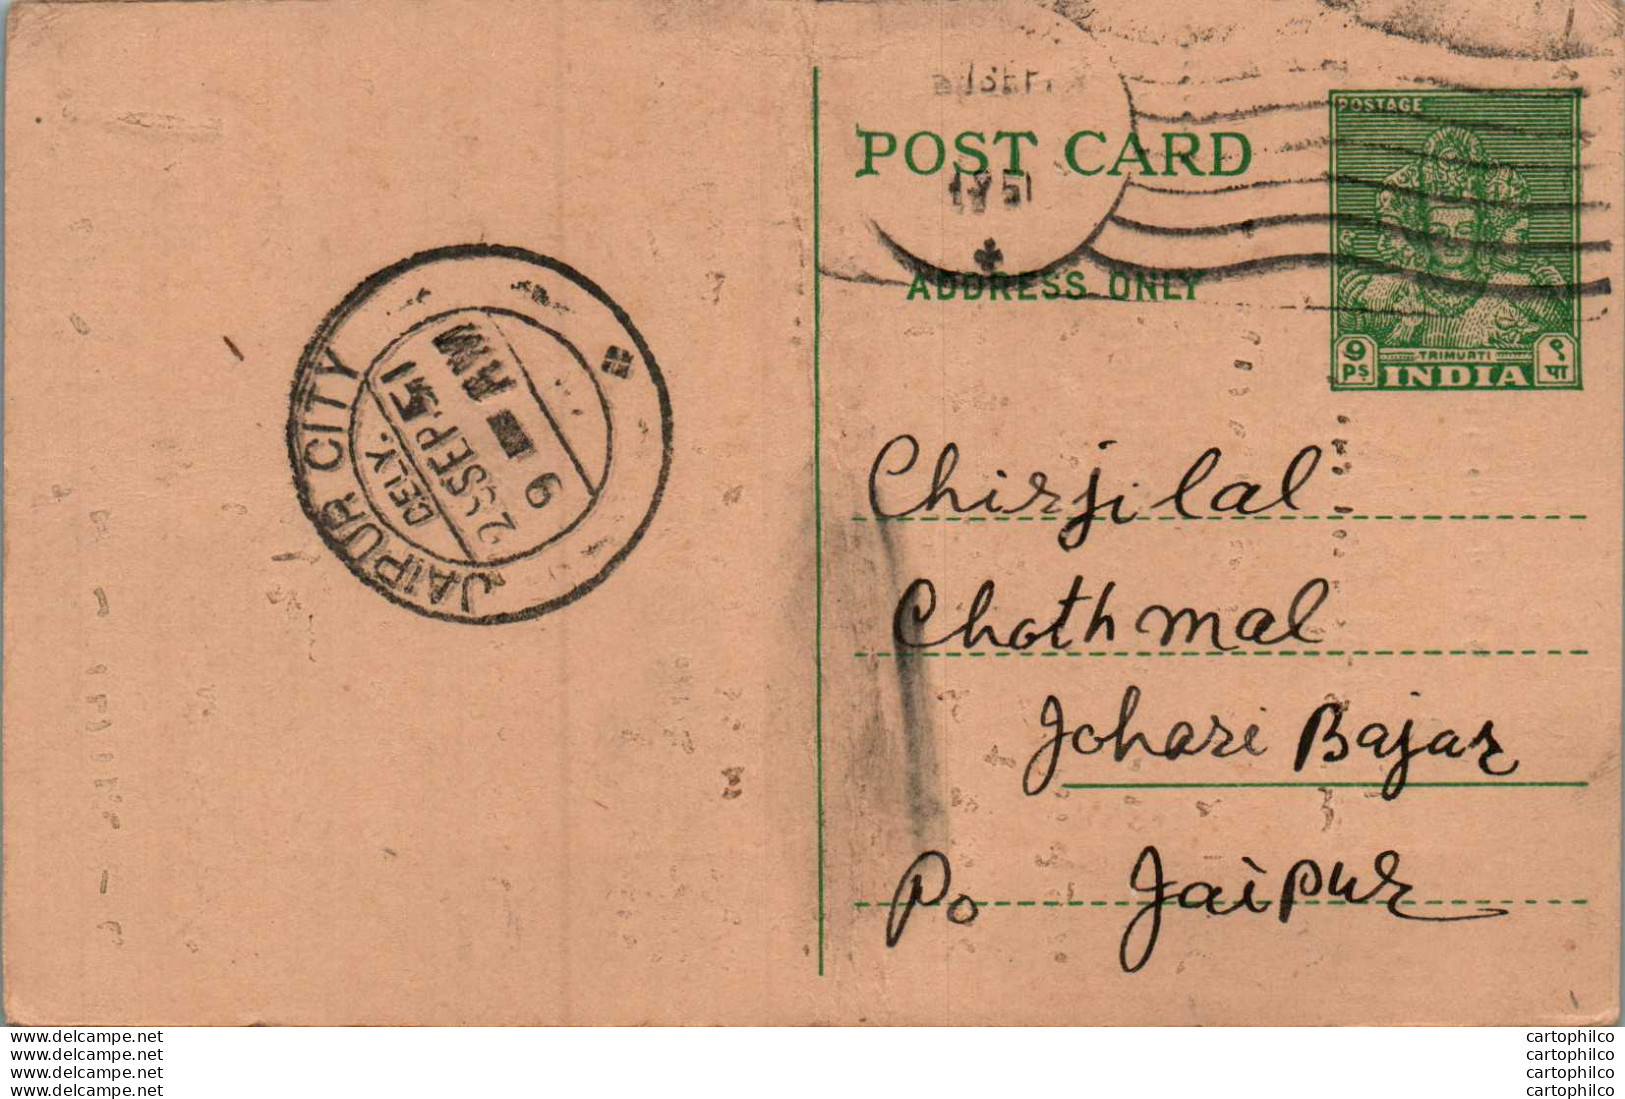 POSTAGE
POST CARD
1951
ADDRESS ONLY
9 Ps
TRIMURTI
INDIA
९ पा
JAIPUR CITY
DELY.
SEP.51
9 AM
Chirjilal
Chothmal
Johari Bajar
Po Jaipur
www.delcampe.net
www.delcampe.net
www.delcampe.net
www.delcampe.net
cartophilco
cartophilco
cartophilco
cartophilco